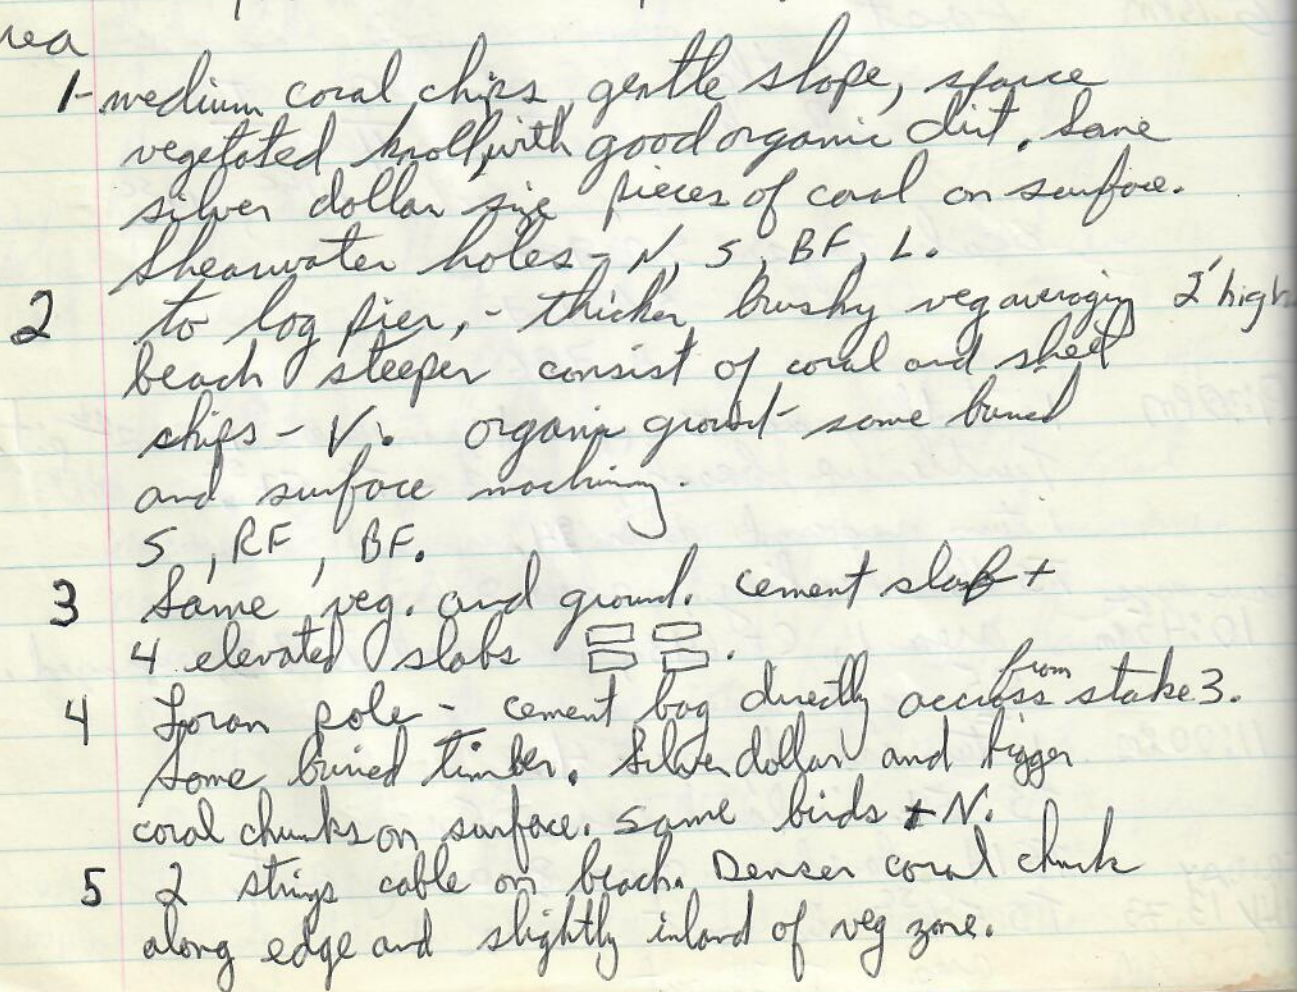 1- medium coral chips, gentle slope, sparce
vegetated knoll, with good organic dirt. Some
silver dollar size pieces of coral on surface.
Shearwater holes - N, S, BF, L.
2 to log pier, - thicker brushy veg averaging 2' high
beach steeper consist of coral and shell
chips - V. organic ground - some buried
and surface machinery.
S, RF, BF.
3 Same veg. and ground. cement slab +
4 elevated slabs .
4 Loran pole - cement bag directly accross from stake 3.
Some buried timber. Silver dollar and bigger
coral chunks on surface. Same birds + N.
5 2 strings cable on beach. Denser coral chunk
along edge and slightly inland of veg zone.